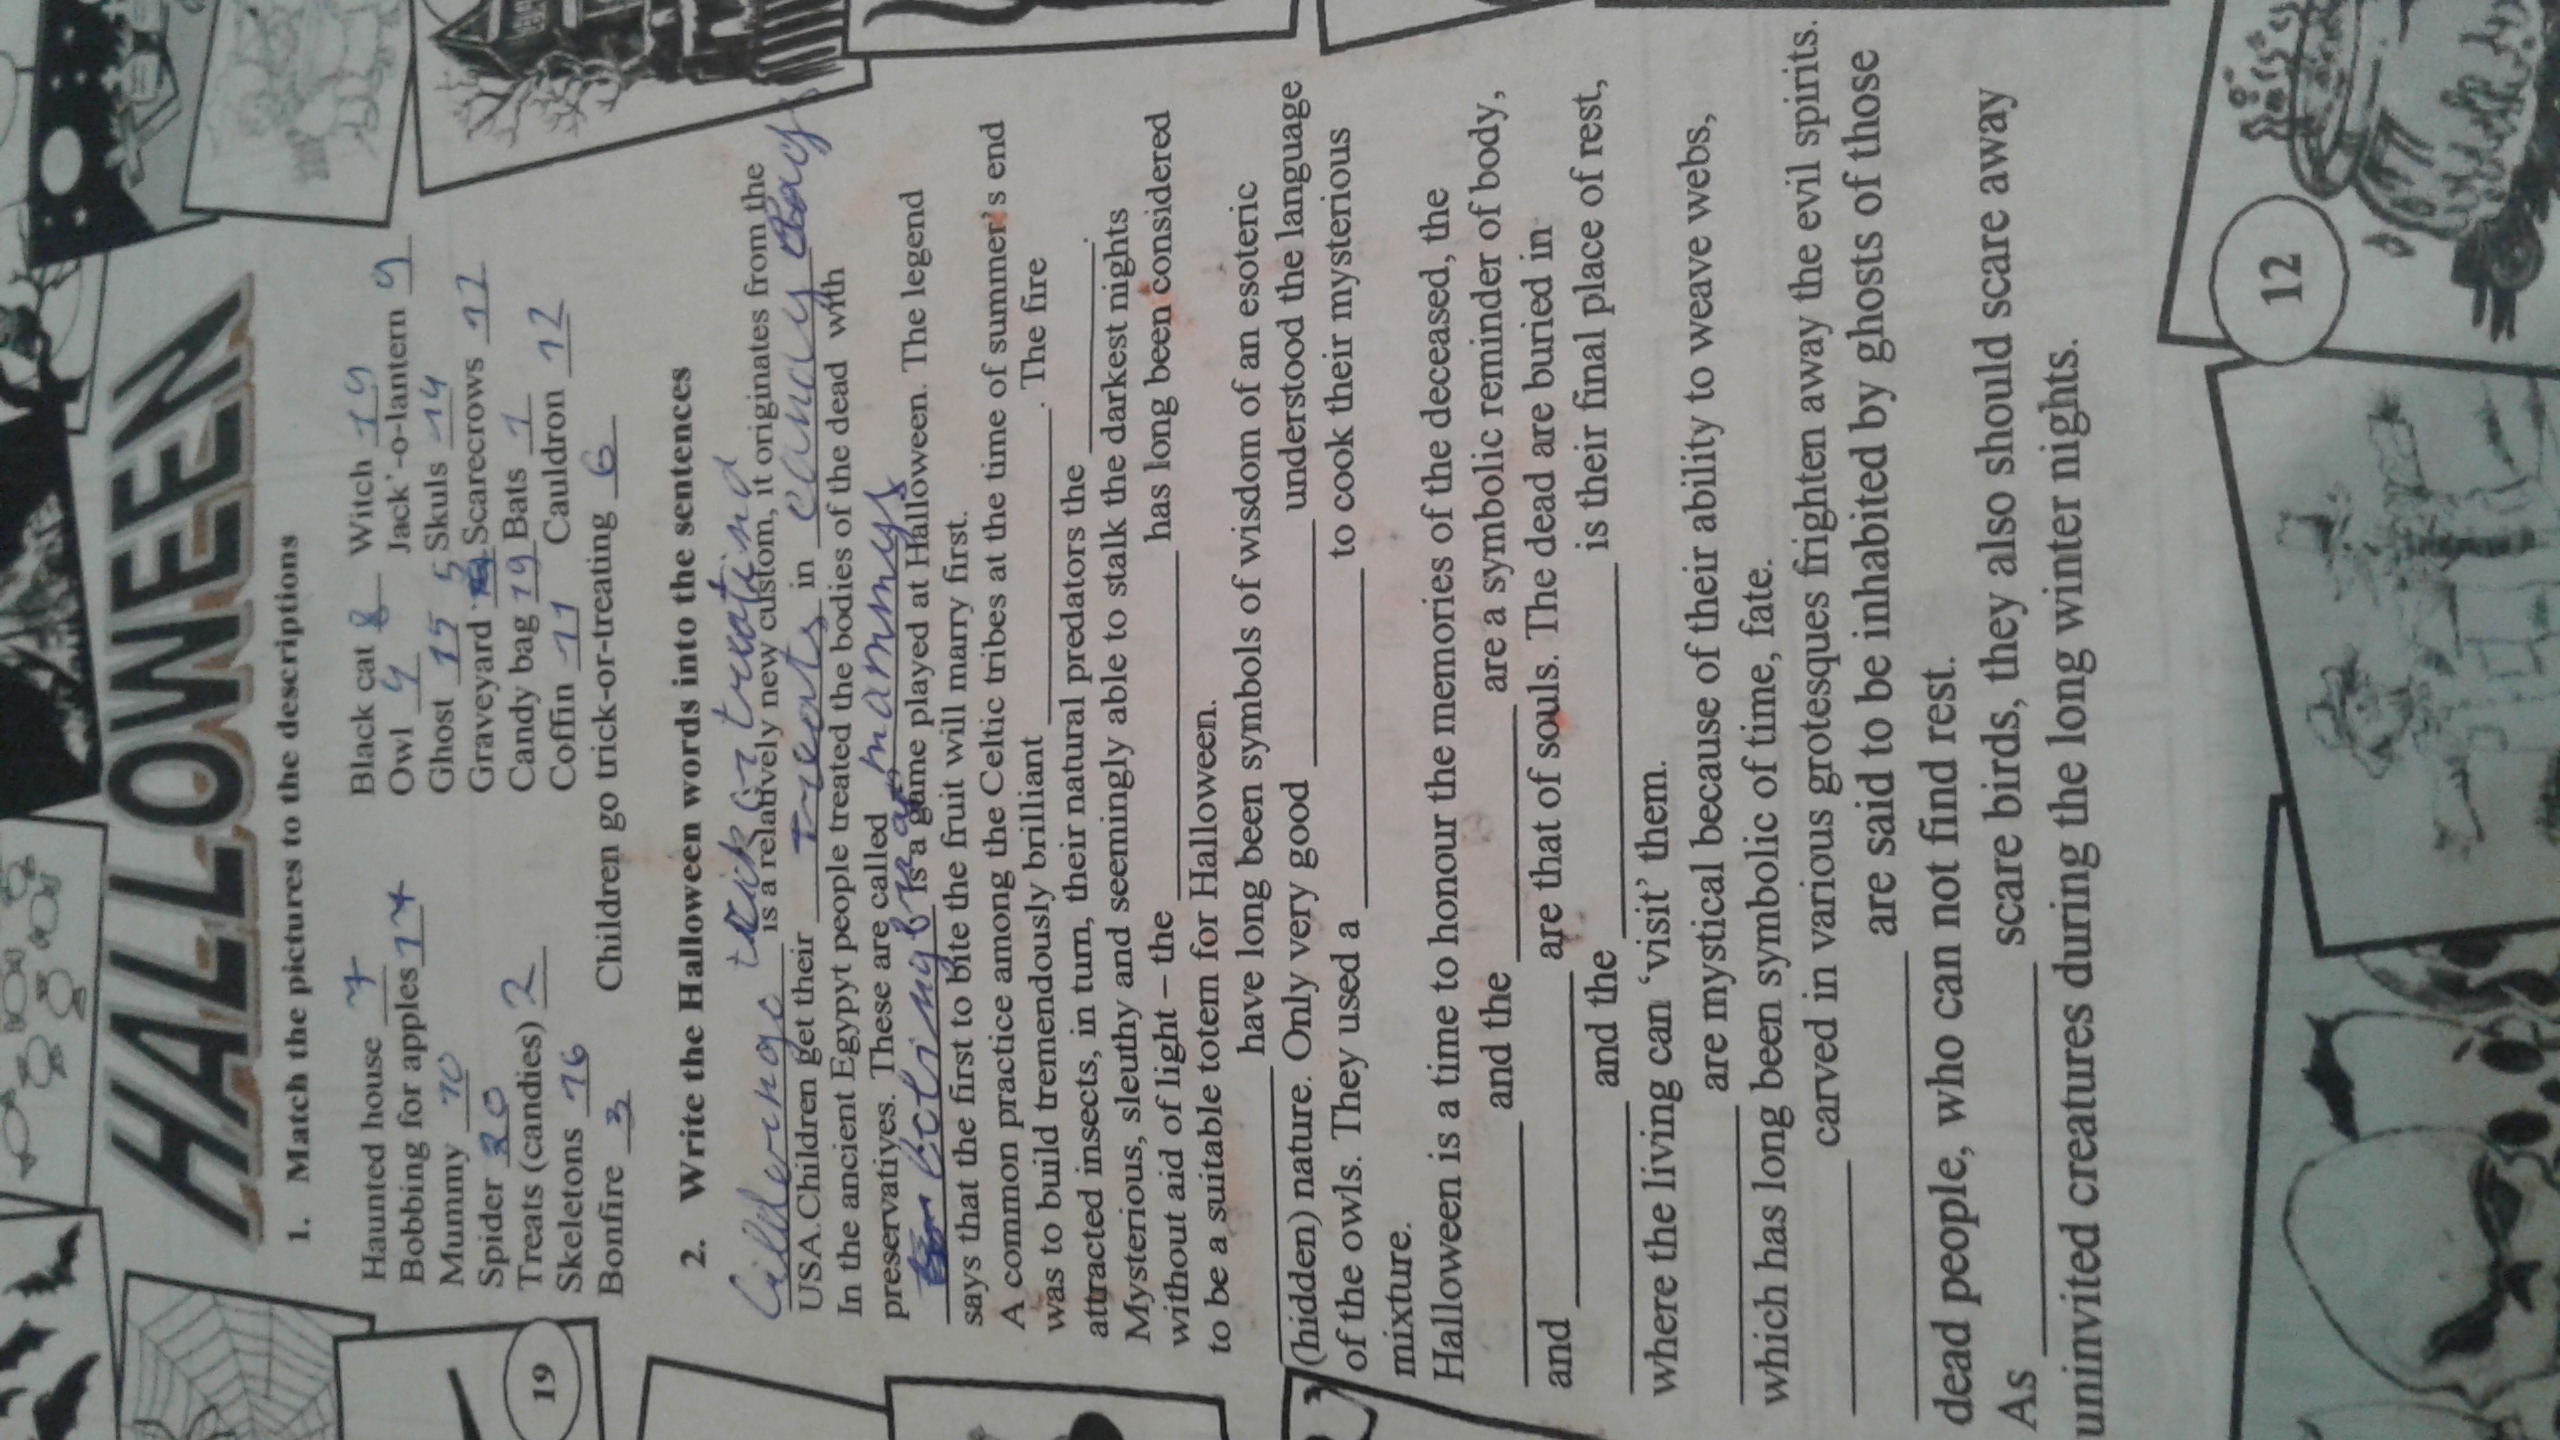 HALLOWEEN
1. Match the pictures to the descriptions
Haunted house 7 Black cat 8 Witch 19
Bobbing for apples 17 Owl 4 Jack'-o-lantern 9
Mummy 10 Ghost 15 Skuls 14
Spider 20 Graveyard 5 Scarecrows 12
Treats (candies) 2 Candy bag 19 Bats 1
Skeletons 16 Coffin 11 Cauldron 12
Bonfire 3 Children go trick-or-treating 6
2. Write the Halloween words into the sentences
trick or treatind is a relatively new custom, it originates from the
USA. Children get their treats in
In the ancient Egypyt people treated the bodies of the dead with
preservatives. These are called mammys
is a game played at Halloween. The legend
says that the first to bite the fruit will marry first.
A common practice among the Celtic tribes at the time of summer's end
was to build tremendously brilliant ____. The fire
attracted insects, in turn, their natural predators the ____.
Mysterious, sleuthy and seemingly able to stalk the darkest nights
without aid of light – the ____ has long been considered
to be a suitable totem for Halloween.
____ have long been symbols of wisdom of an esoteric
(hidden) nature. Only very good ____ understood the language
of the owls. They used a ____ to cook their mysterious
mixture.
Halloween is a time to honour the memories of the deceased, the
____ and the ____ are a symbolic reminder of body,
and ____ are that of souls. The dead are buried in
____ and the ____ is their final place of rest,
where the living can 'visit' them.
____ are mystical because of their ability to weave webs,
which has long been symbolic of time, fate.
____ carved in various grotesques frighten away the evil spirits.
____ are said to be inhabited by ghosts of those
dead people, who can not find rest.
As ____ scare birds, they also should scare away
uninvited creatures during the long winter nights.
19
12